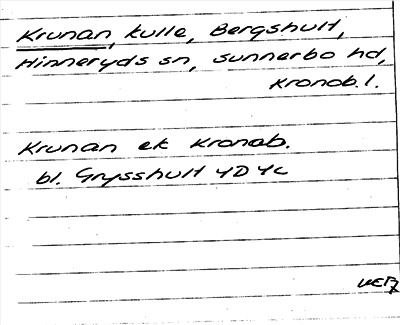 Krunan, kulle, Bergshult,
Hinneryds sn, Sunnerbo hd,
Kronob. l.
Krunan ek Kronob.
bl. Grysshult 4D 4c